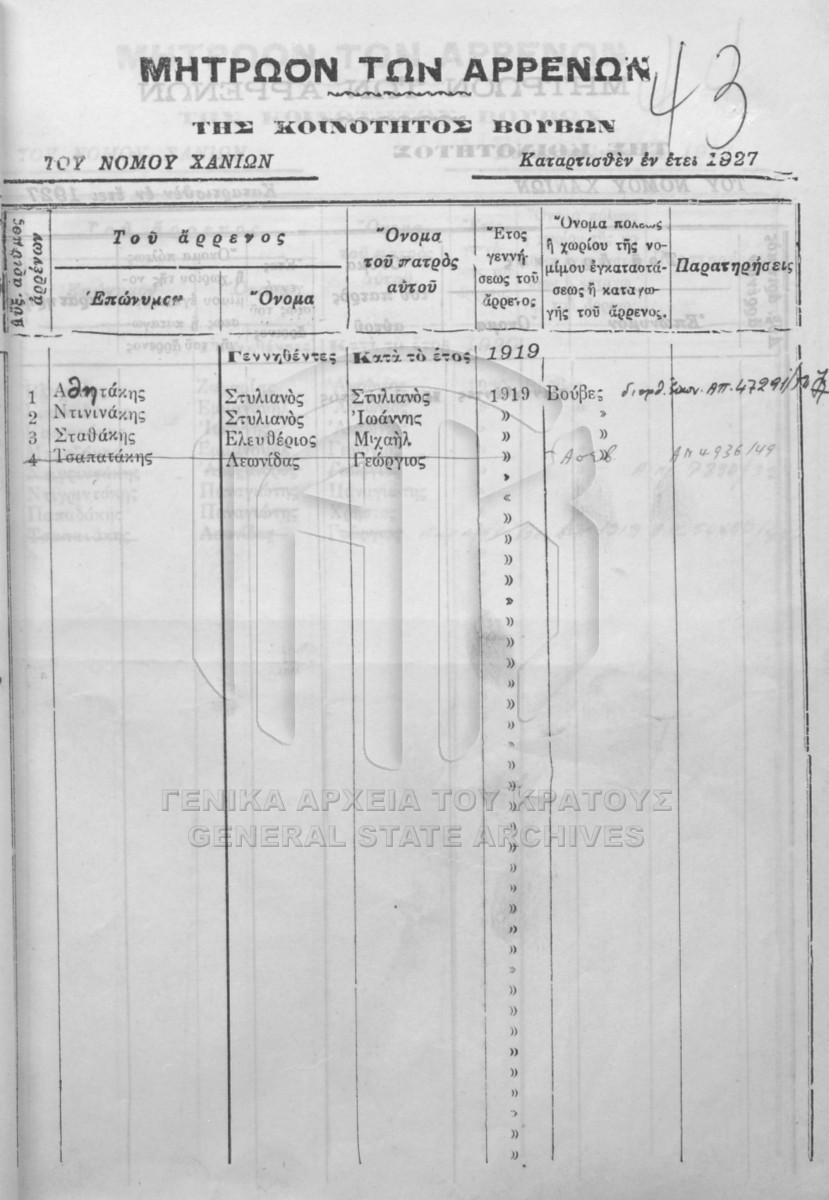 ΜΗΤΡΩΟΝ ΤΩΝ ΑΡΡΕΝΩΝ 43
ΤΗΣ ΚΟΙΝΟΤΗΤΟΣ ΒΟΥΒΩΝ
ΤΟΥ ΝΟΜΟΥ ΧΑΝΙΩΝ Καταρτισθὲν ἐν ἔτει 1927
Αὔξ. ἀριθμὸς ἀρρένων
Τοῦ ἄρρενος
Ἐπώνυμον Ὄνομα
Ὄνομα
τοῦ πατρὸς
αὐτοῦ
Ἔτος
γεννή-
σεως τοῦ
ἄρρενος
Ὄνομα πόλεως
ἢ χωρίου τῆς νο-
μίμου ἐγκαταστά-
σεως ἢ καταγω-
γῆς τοῦ ἄρρενος.
Παρατηρήσεις
Γεννηθέντες Κατὰ τὸ ἔτος 1919
1 Αθητάκης Στυλιανὸς Στυλιανὸς 1919 Βούβες διορθ. ΑΠ. 47291
2 Ντινινάκης Στυλιανὸς Ἰωάννης » »
3 Σταθάκης Ελευθέριος Μιχαὴλ » »
4 Τσαπατάκης Λεωνίδας Γεώργιος » » ΑΠ 4936/49
ΓΕΝΙΚΑ ΑΡΧΕΙΑ ΤΟΥ ΚΡΑΤΟΥΣ
GENERAL STATE ARCHIVES